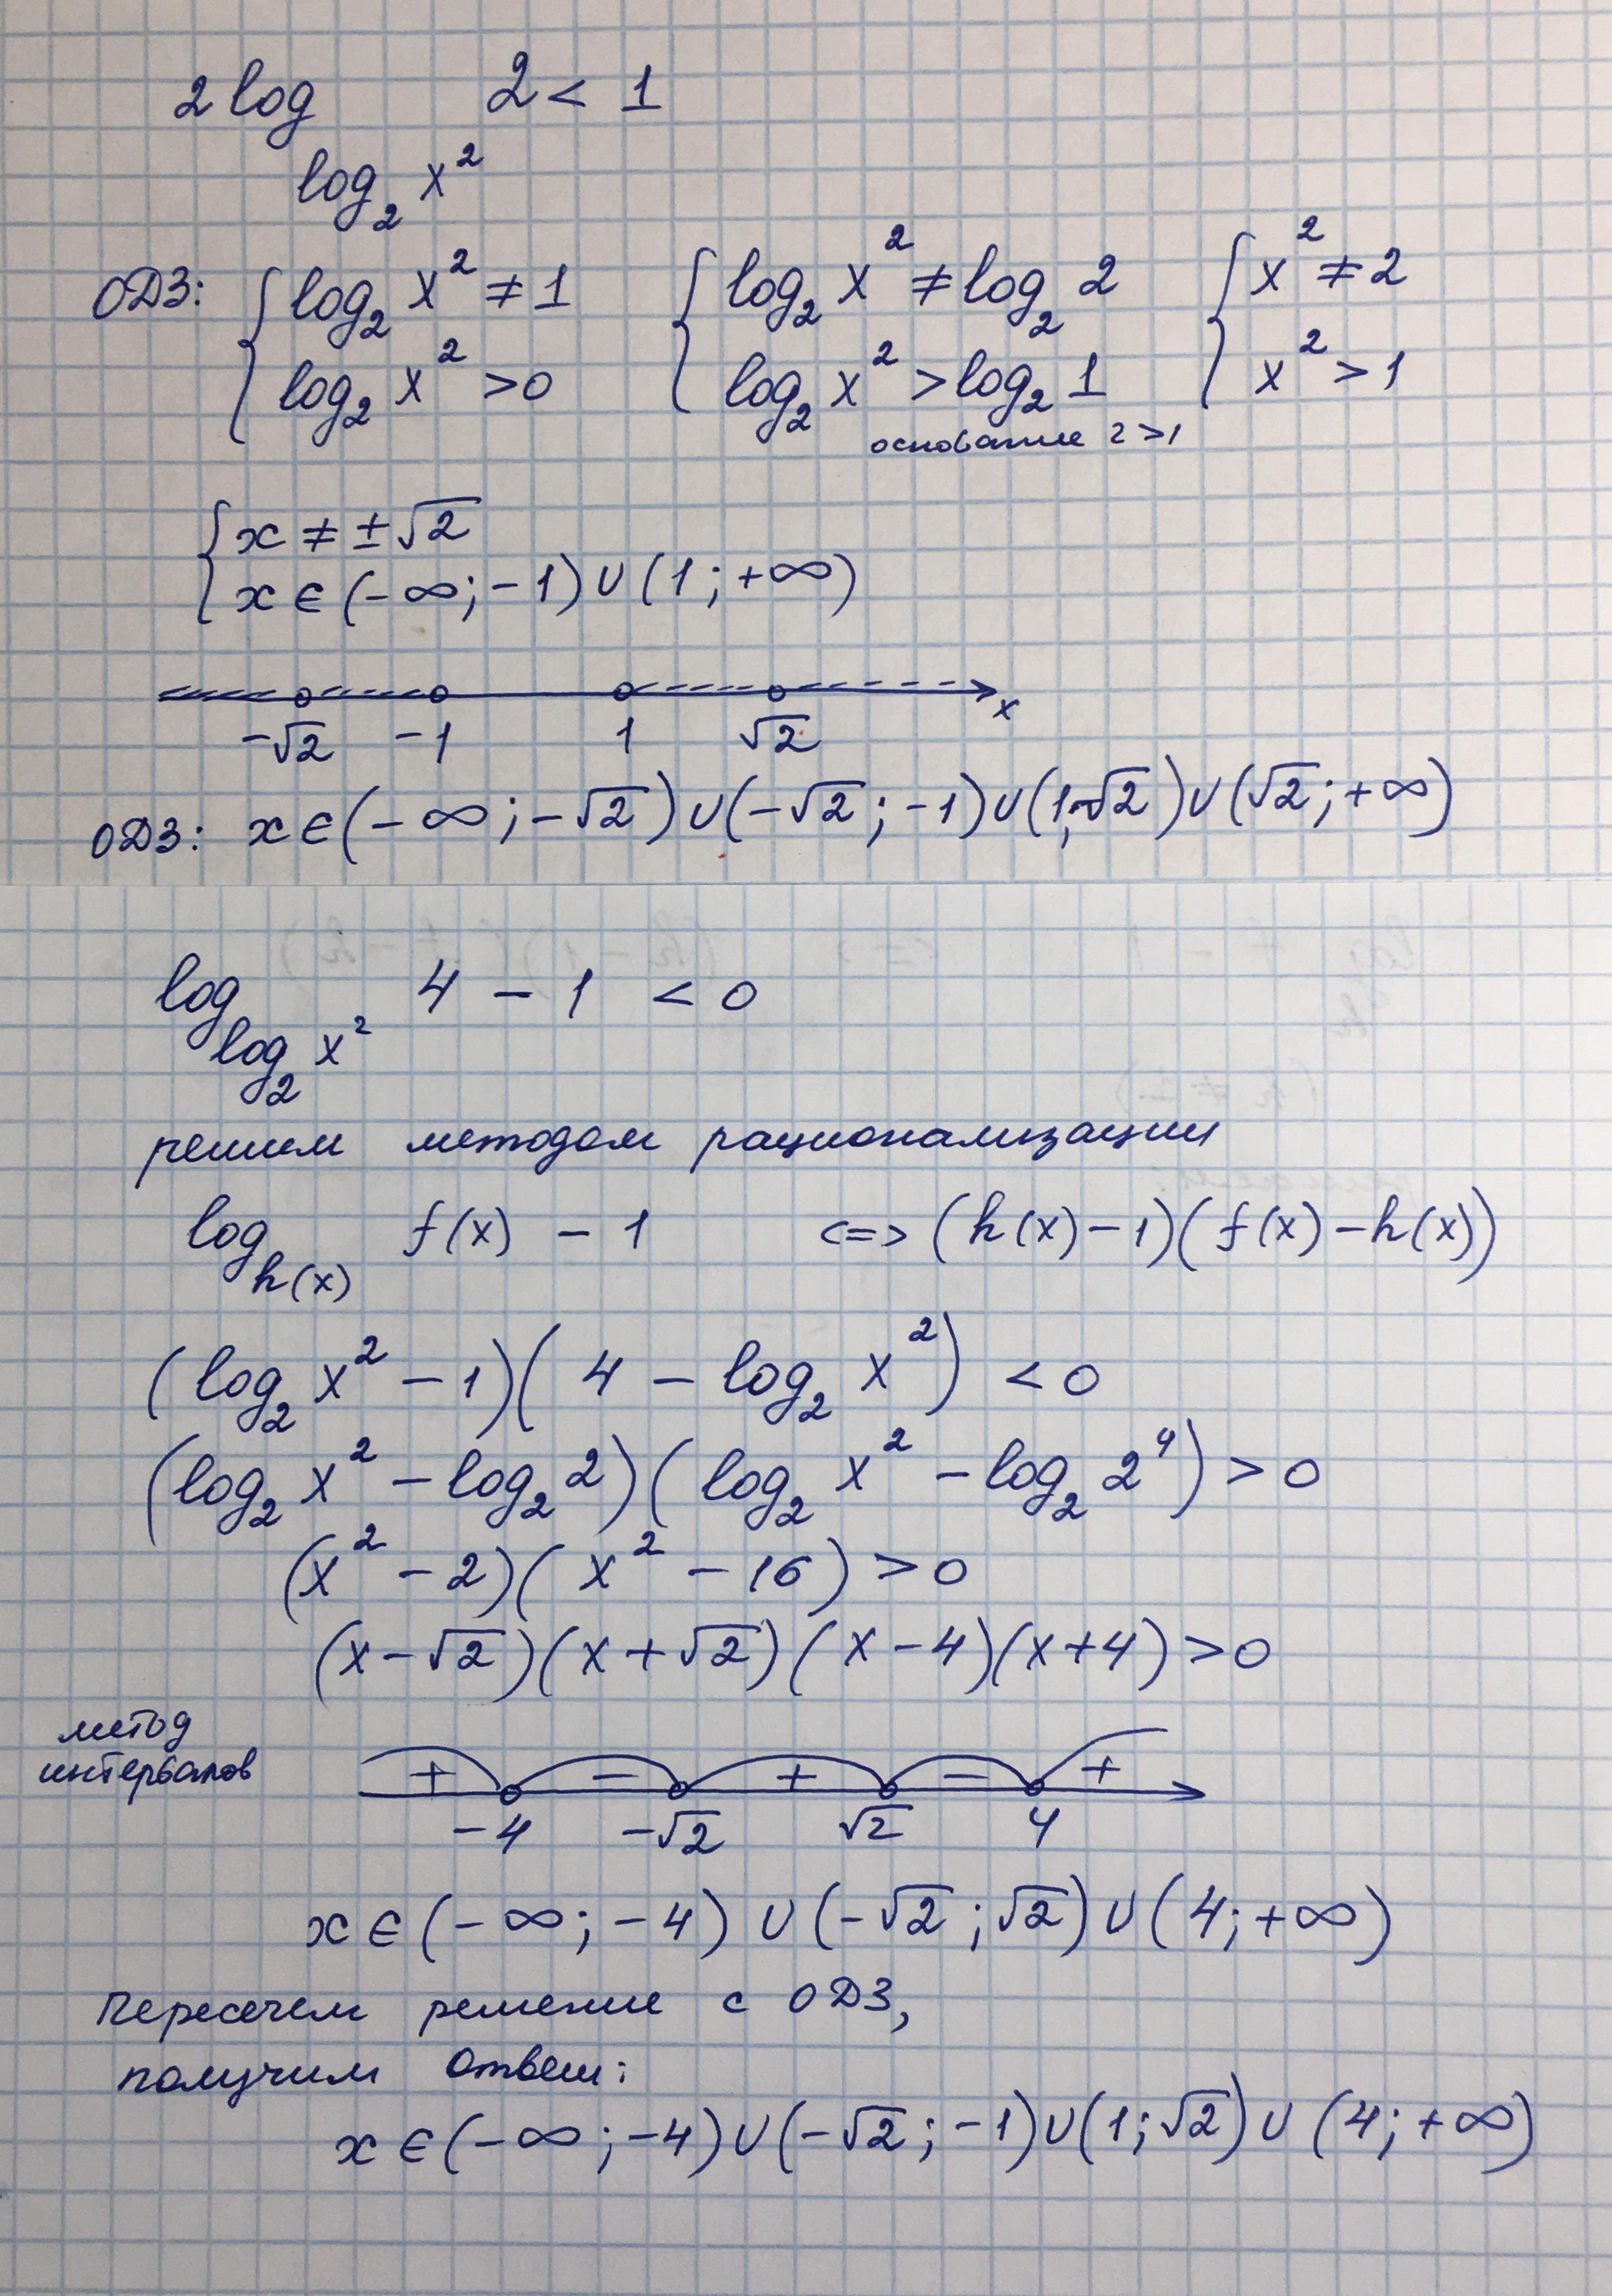 2 log_{log₂ x²} 2 < 1
ОДЗ: { log₂ x² ≠ 1 { log₂ x² ≠ log₂ 2 { x² ≠ 2
log₂ x² > 0 log₂ x² > log₂ 1 x² > 1
основание 2 > 1
{ x ≠ ±√2
x ∈ (-∞; -1) ∪ (1; +∞)
-√2 -1 1 √2 x
ОДЗ: x ∈ (-∞; -√2) ∪ (-√2; -1) ∪ (1; √2) ∪ (√2; +∞)
log_{log₂ x²} 4 - 1 < 0
решим методом рационализации
log_{h(x)} f(x) - 1 <=> (h(x) - 1)(f(x) - h(x))
(log₂ x² - 1)(4 - log₂ x²) < 0
(log₂ x² - log₂ 2)(log₂ x² - log₂ 2⁴) > 0
(x² - 2)(x² - 16) > 0
(x - √2)(x + √2)(x - 4)(x + 4) > 0
метод
интервалов
+ - + - +
-4 -√2 √2 4
x ∈ (-∞; -4) ∪ (-√2; √2) ∪ (4; +∞)
Пересечем решение с ОДЗ,
получим ответ:
x ∈ (-∞; -4) ∪ (-√2; -1) ∪ (1; √2) ∪ (4; +∞)